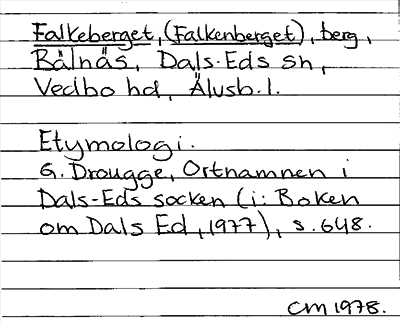 Falkeberget, (Falkenberget), berg,
Bälnäs, Dals-Eds sn,
Vedbo hd, Älvsb.l.
Etymologi.
G. Drougge, Ortnamnen i
Dals-Eds socken (i: Boken
om Dals Ed, 1977), s. 648.
CM 1978.